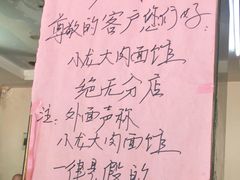 尊敬的客户您们好:
小龙大肉面馆
绝无分店
注:外面声称
小龙大肉面馆
一律是假的